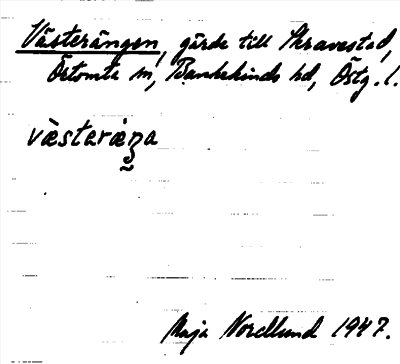 Västerängen, gärde till Skravestad,
Örtomta sn, Bankekinds hd, Östg. l.
vàsteráŋa
Maja Nordlund 1947.